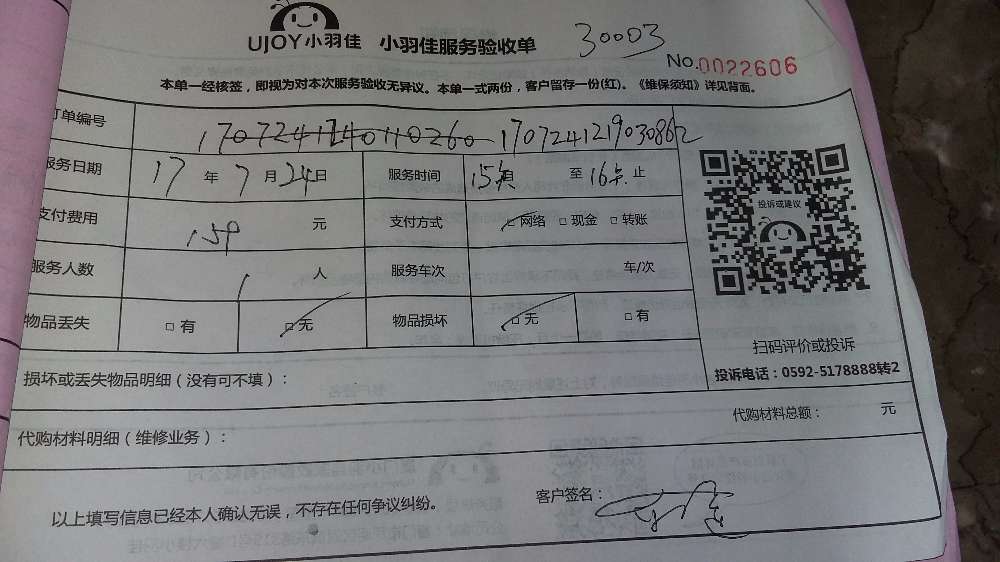 UJOY小羽佳 小羽佳服务验收单 30003
No.0022606
本单一经核签，即视为对本次服务验收无异议。本单一式两份，客户留存一份(红)。《维保须知》详见背面。
订单编号 170724124010260 1707241219030862
服务日期 17 年 7 月 24日 服务时间 15点 至 16点 止
支付费用 159 元 支付方式 □ 网络 □ 现金 □ 转账
投诉或建议
服务人数 1 人 服务车次 车/次
物品丢失 □ 有 □ 无 物品损坏 □ 无 □ 有
扫码评价或投诉
投诉电话：0592-5178888转2
损坏或丢失物品明细（没有可不填）：
代购材料总额： 元
代购材料明细（维修业务）：
客户签名：
以上填写信息已经本人确认无误，不存在任何争议纠纷。